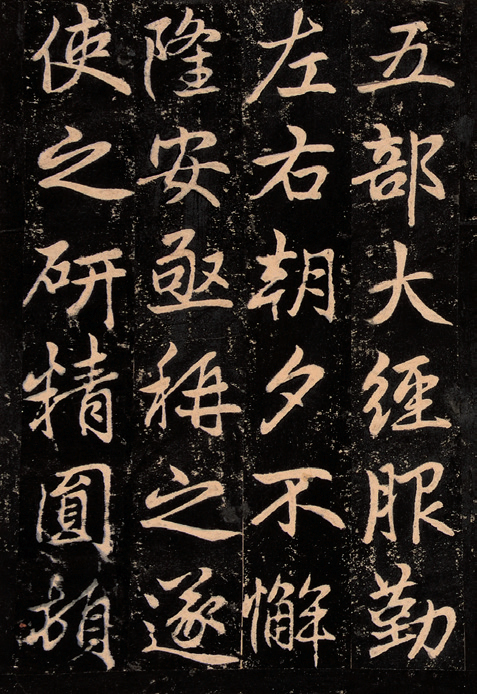 五部大經服勤
左右朝夕不懈
隆安亟稱之遂
使之研精圓頓